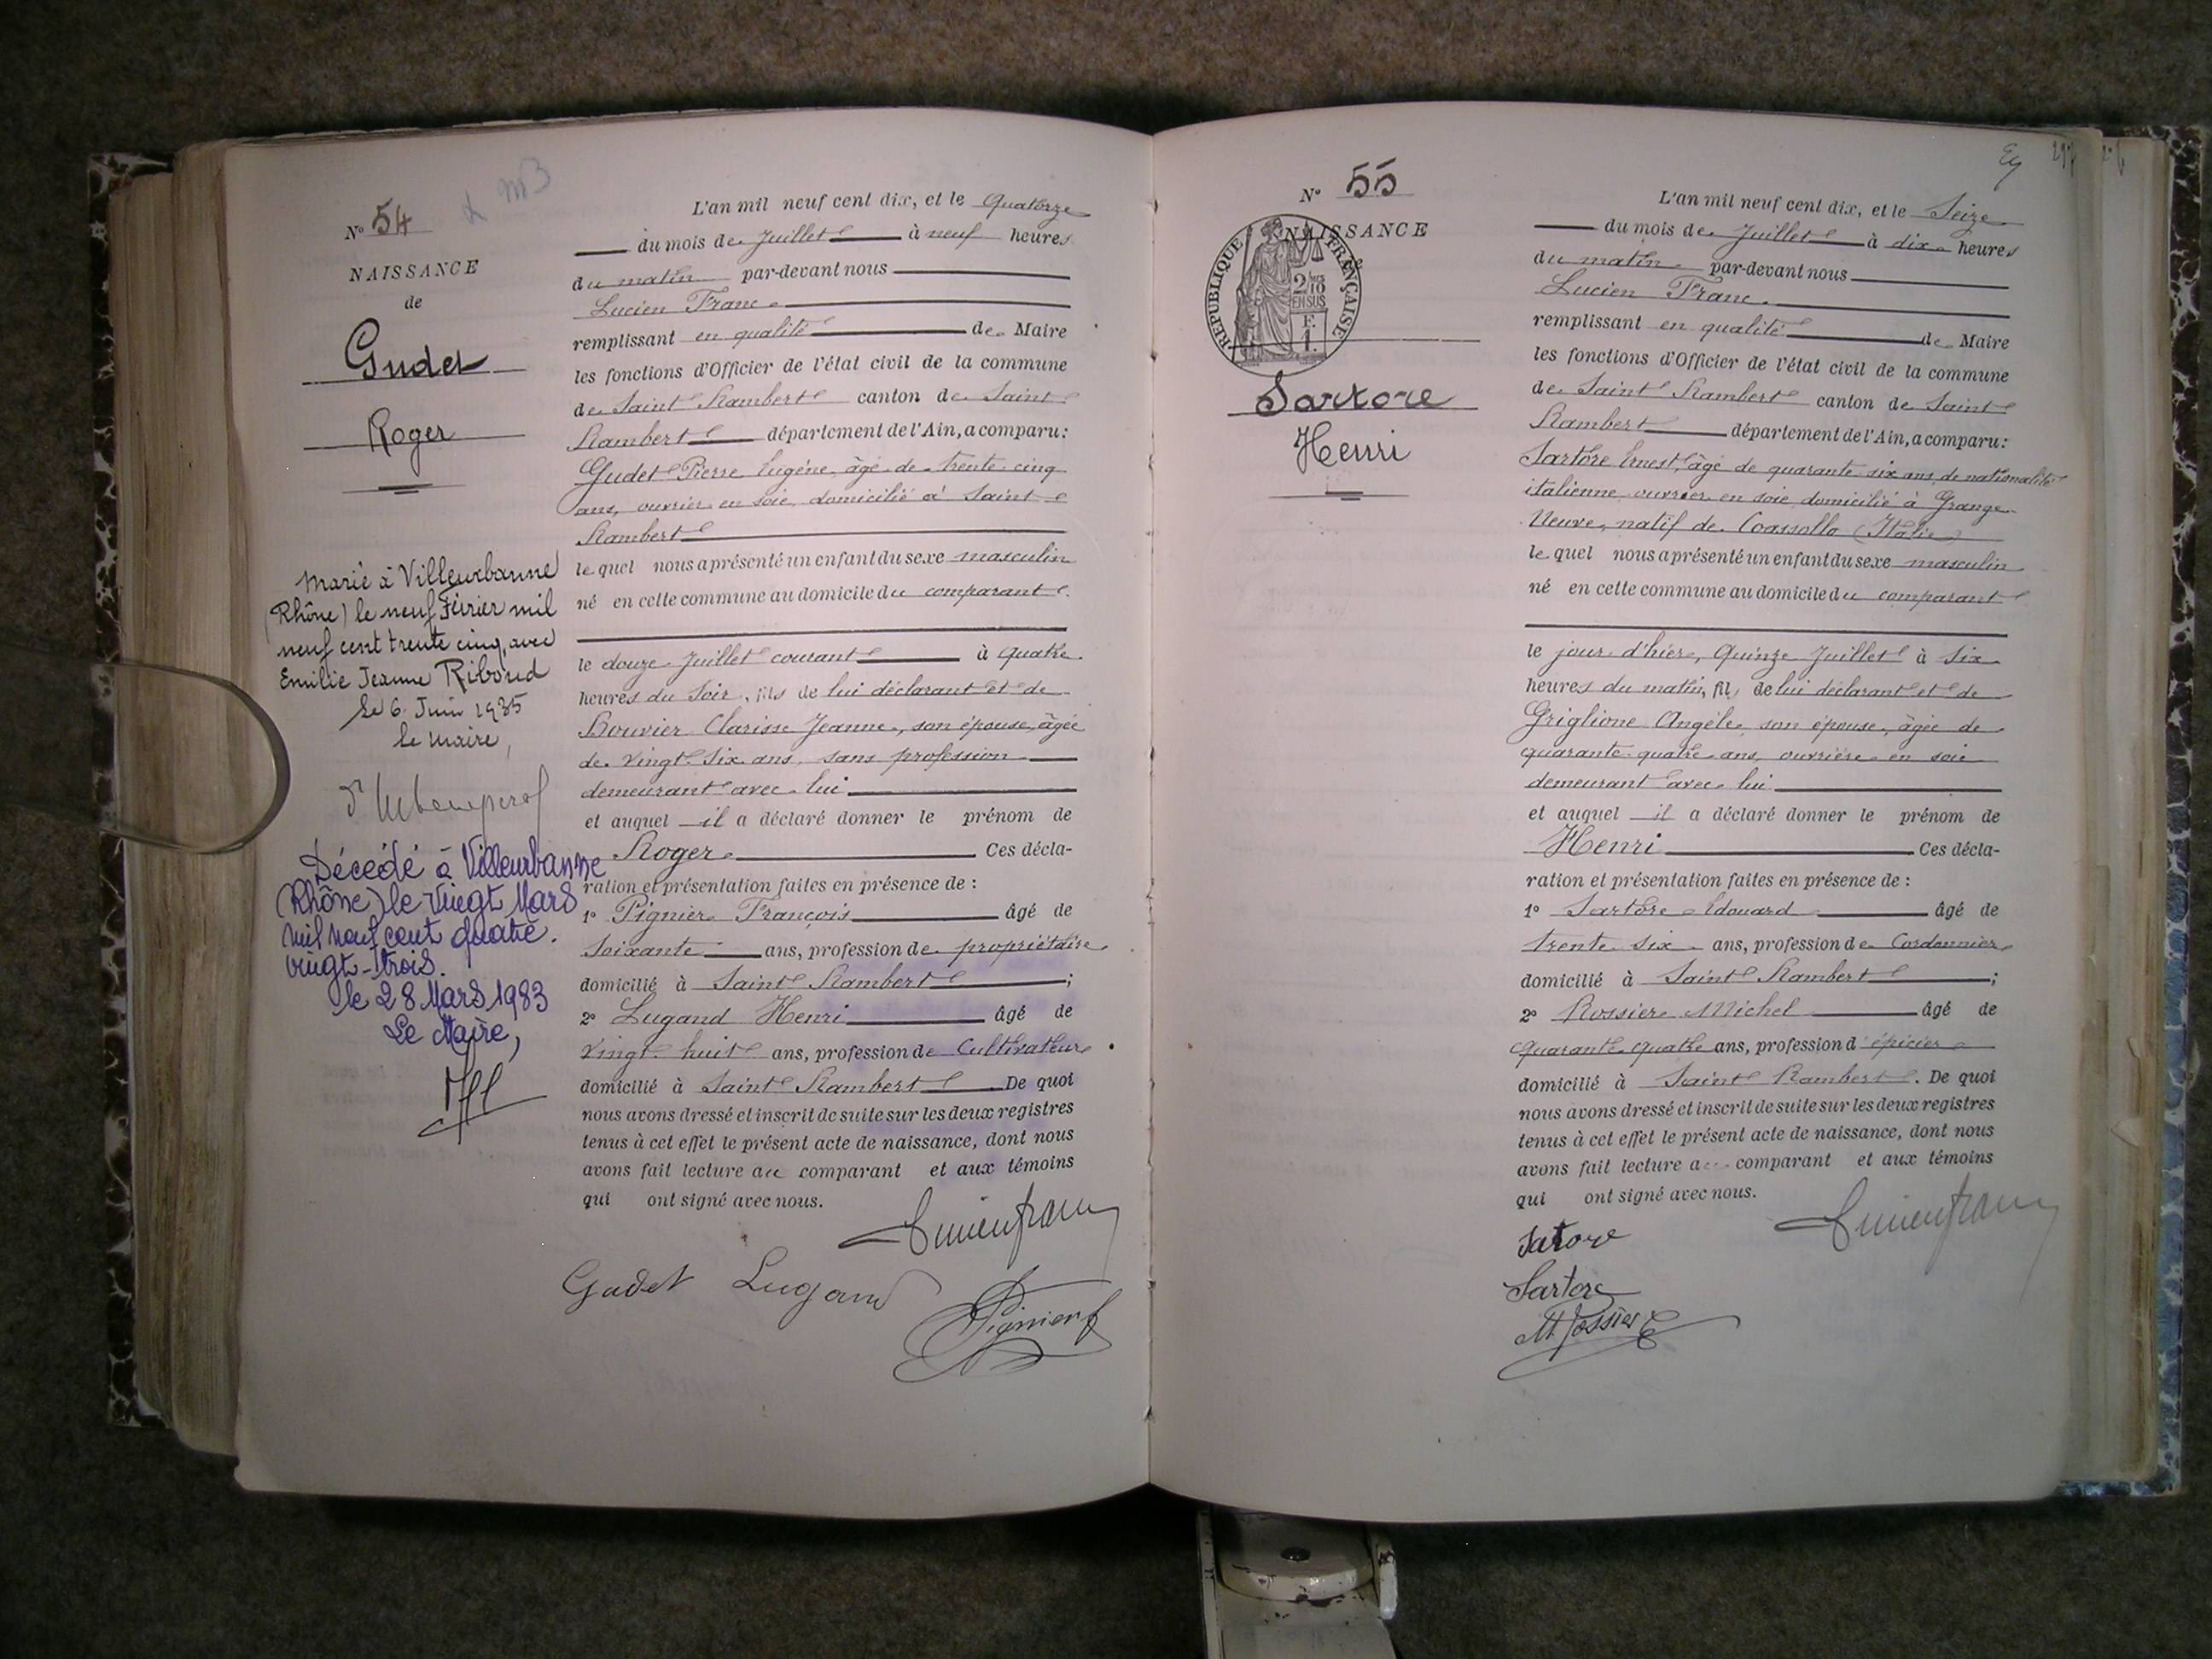 N° 54
NAISSANCE
de
Gudet
Roger
Marié à Villeurbanne
(Rhône) le neuf Février mil
neuf cent trente cinq, avec
Emilie Jeanne Riboud
Le 6 Juin 1935
le Maire,
Décédé à Villeurbanne
(Rhône) le Vingt Mars
Mil neuf cent quatre.
vingt-trois.
le 28 Mars 1983
Le Maire,
L'an mil neuf cent dix, et le Quatorze
du mois de Juillet à neuf heures
du matin par-devant nous
Lucien Franc
remplissant en qualité de Maire
les fonctions d'Officier de l'état civil de la commune
de Saint Rambert canton de Saint
Rambert département de l'Ain, a comparu:
Gudet Pierre Eugène, âgé de trente cinq
ans, ouvrier en soie, domicilié à Saint
Rambert
le quel nous a présenté un enfant du sexe masculin
né en cette commune au domicile du comparant.
le douze Juillet courant à quatre
heures du Soir, fils de lui déclarant et de
Bouvier Clarisse Jeanne, son épouse, âgée
de vingt six ans, sans profession
demeurant avec lui
et auquel il a déclaré donner le prénom de
Roger Ces décla-
ration et présentation faites en présence de :
1° Pignier François âgé de
Soixante ans, profession de propriétaire
domicilié à Saint Rambert ;
2° Lugand Henri âgé de
vingt huit ans, profession de Cultivateur
domicilié à Saint Rambert De quoi
nous avons dressé et inscrit de suite sur les deux registres
tenus à cet effet le présent acte de naissance, dont nous
avons fait lecture au comparant et aux témoins
qui ont signé avec nous.
Lucien Franc
Gudet Lugand
Pignier f
N° 55
NAISSANCE
REPUBLIQUE FRANÇAISE
2/10
EN SUS
F.
1.
Sartore
Henri
L'an mil neuf cent dix, et le Seize
du mois de Juillet à dix heures
du matin par-devant nous
Lucien Franc.
remplissant en qualité de Maire
les fonctions d'Officier de l'état civil de la commune
de Saint Rambert canton de Saint
Rambert département de l'Ain, a comparu:
Sartore Ernest, âgé de quarante six ans, de nationalité
italienne, ouvrier en soie, domicilié à Grange
Neuve, natif de Coassollo (Italie)
le quel nous a présenté un enfant du sexe masculin
né en cette commune au domicile du comparant
le jour d'hier, Quinze Juillet à six
heures du matin, fils de lui déclarant et de
Griglione Angèle, son épouse, âgée de
quarante quatre ans, ouvrière en soie
demeurant avec lui
et auquel il a déclaré donner le prénom de
Henri Ces décla-
ration et présentation faites en présence de :
1° Sartore Edouard âgé de
trente six ans, profession de Cordonnier
domicilié à Saint Rambert ;
2° Rossier Michel âgé de
quarante quatre ans, profession d'épicier
domicilié à Saint Rambert. De quoi
nous avons dressé et inscrit de suite sur les deux registres
tenus à cet effet le présent acte de naissance, dont nous
avons fait lecture au comparant et aux témoins
qui ont signé avec nous.
Lucien Franc
Satore
Sartore
M. Rossier